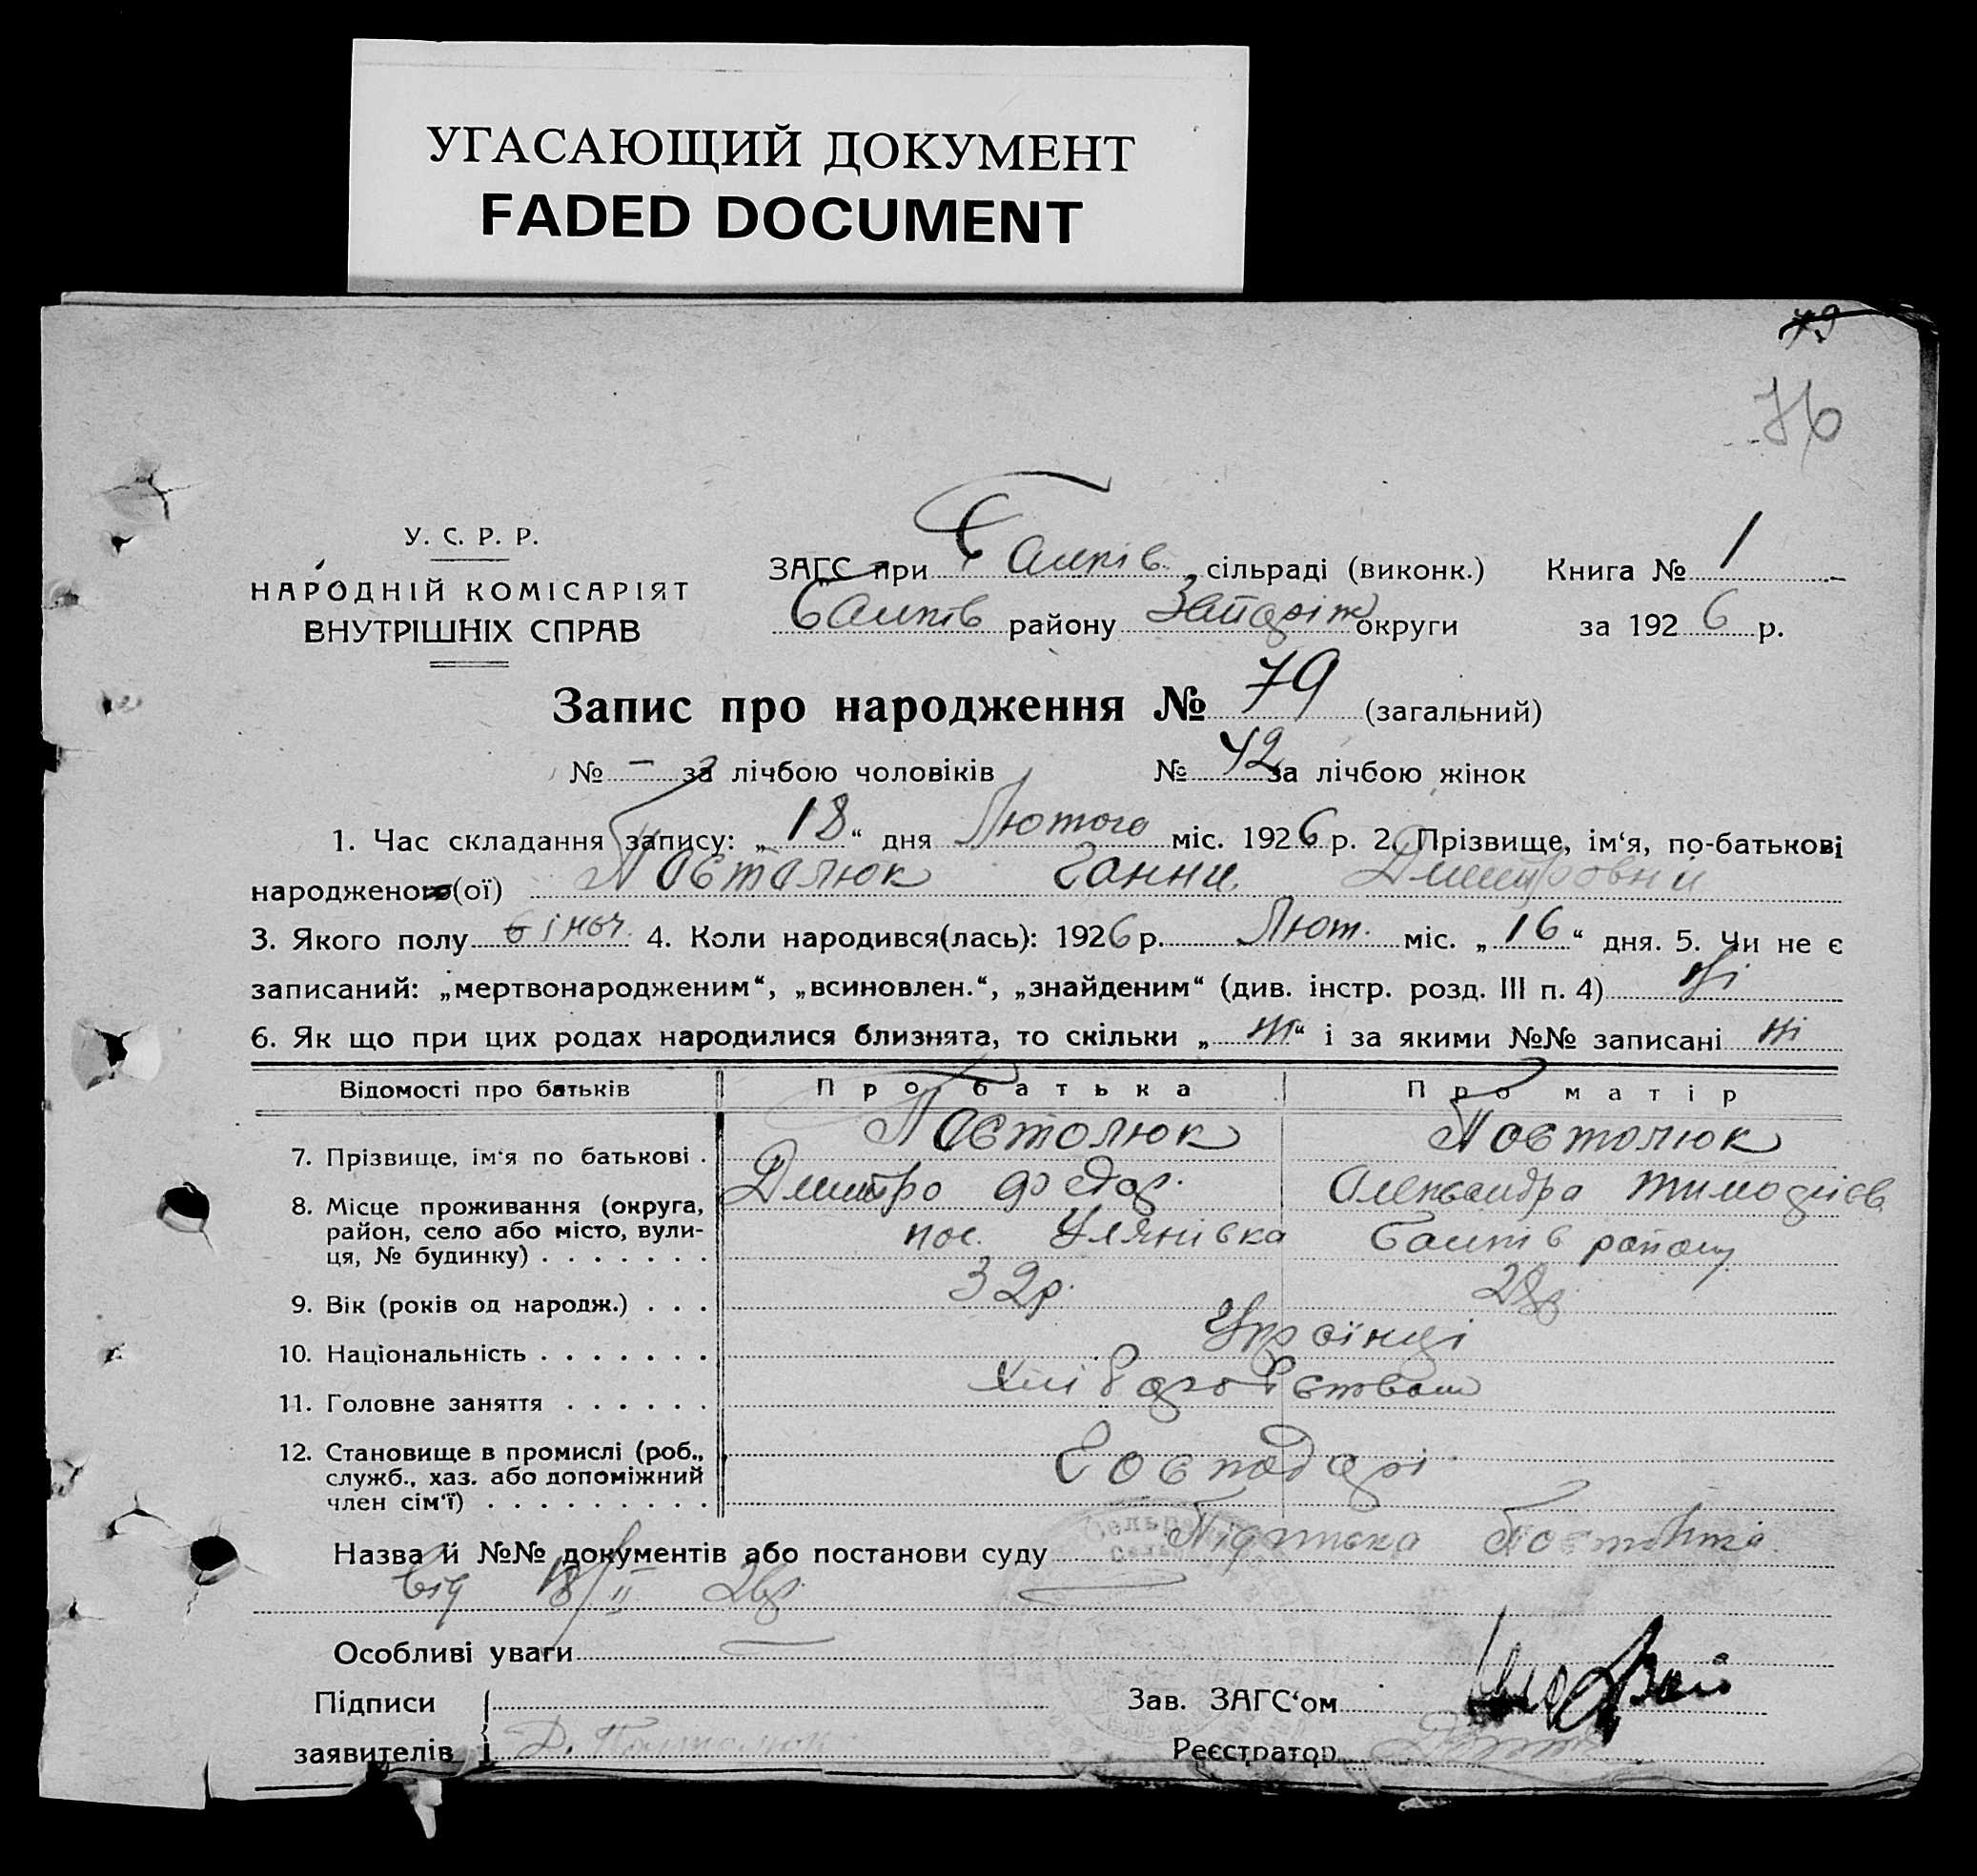 УГАСАЮЩИЙ ДОКУМЕНТ
FADED DOCUMENT
79
76
У. С. Р. Р.
НАРОДНІЙ КОМІСАРІЯТ
ВНУТРІШНІХ СПРАВ
ЗАГС при Балків. сільраді (виконк.) Книга № 1
Балків району Запоріж округи за 1926 р.
Запис про народження № 79 (загальний)
№ – за лічбою чоловіків № 42 за лічбою жінок
1. Час складання запису: „18“ дня Лютого міс. 1926 р. 2. Прізвище, ім‘я, по-батькові
народженого(ої) Постолюк Ганни Дмитровни
3. Якого полу жіноч. 4. Коли народився(лась): 1926 р. Лют. міс. „16“ дня. 5. Чи не є
записаний: „мертвонародженим“, „всиновлен.“, „знайденим“ (див. інстр. розд. III п. 4) Ні
6. Як що при цих родах народилися близнята, то скільки „ні“ і за якими №№ записані ні
Відомості про батьків Про батька Про матір
7. Прізвище, ім‘я по батькові . Постолюк Постолюк
Дмитро Федор. Александра Тимофієв
8. Місце проживання (округа,
район, село або місто, вули-
ця, № будинку) . . . . . . . пос. Улянівка Балків району
9. Вік (років од народж.) . . . 32р. 28р.
10. Національність . . . . . . . Українці
11. Головне заняття . . . . . . Хліборобством
12. Становище в промислі (роб.,
служб., хаз. або допоміжний
член сім‘ї) . . . . . . . . . Господарі
Назва й №№ документів або постанови суду
від 18/II 26р.
Особливі уваги
Підписи
заявителів Д. Постолюк
Зав. ЗАГС‘ом
Реєстратор